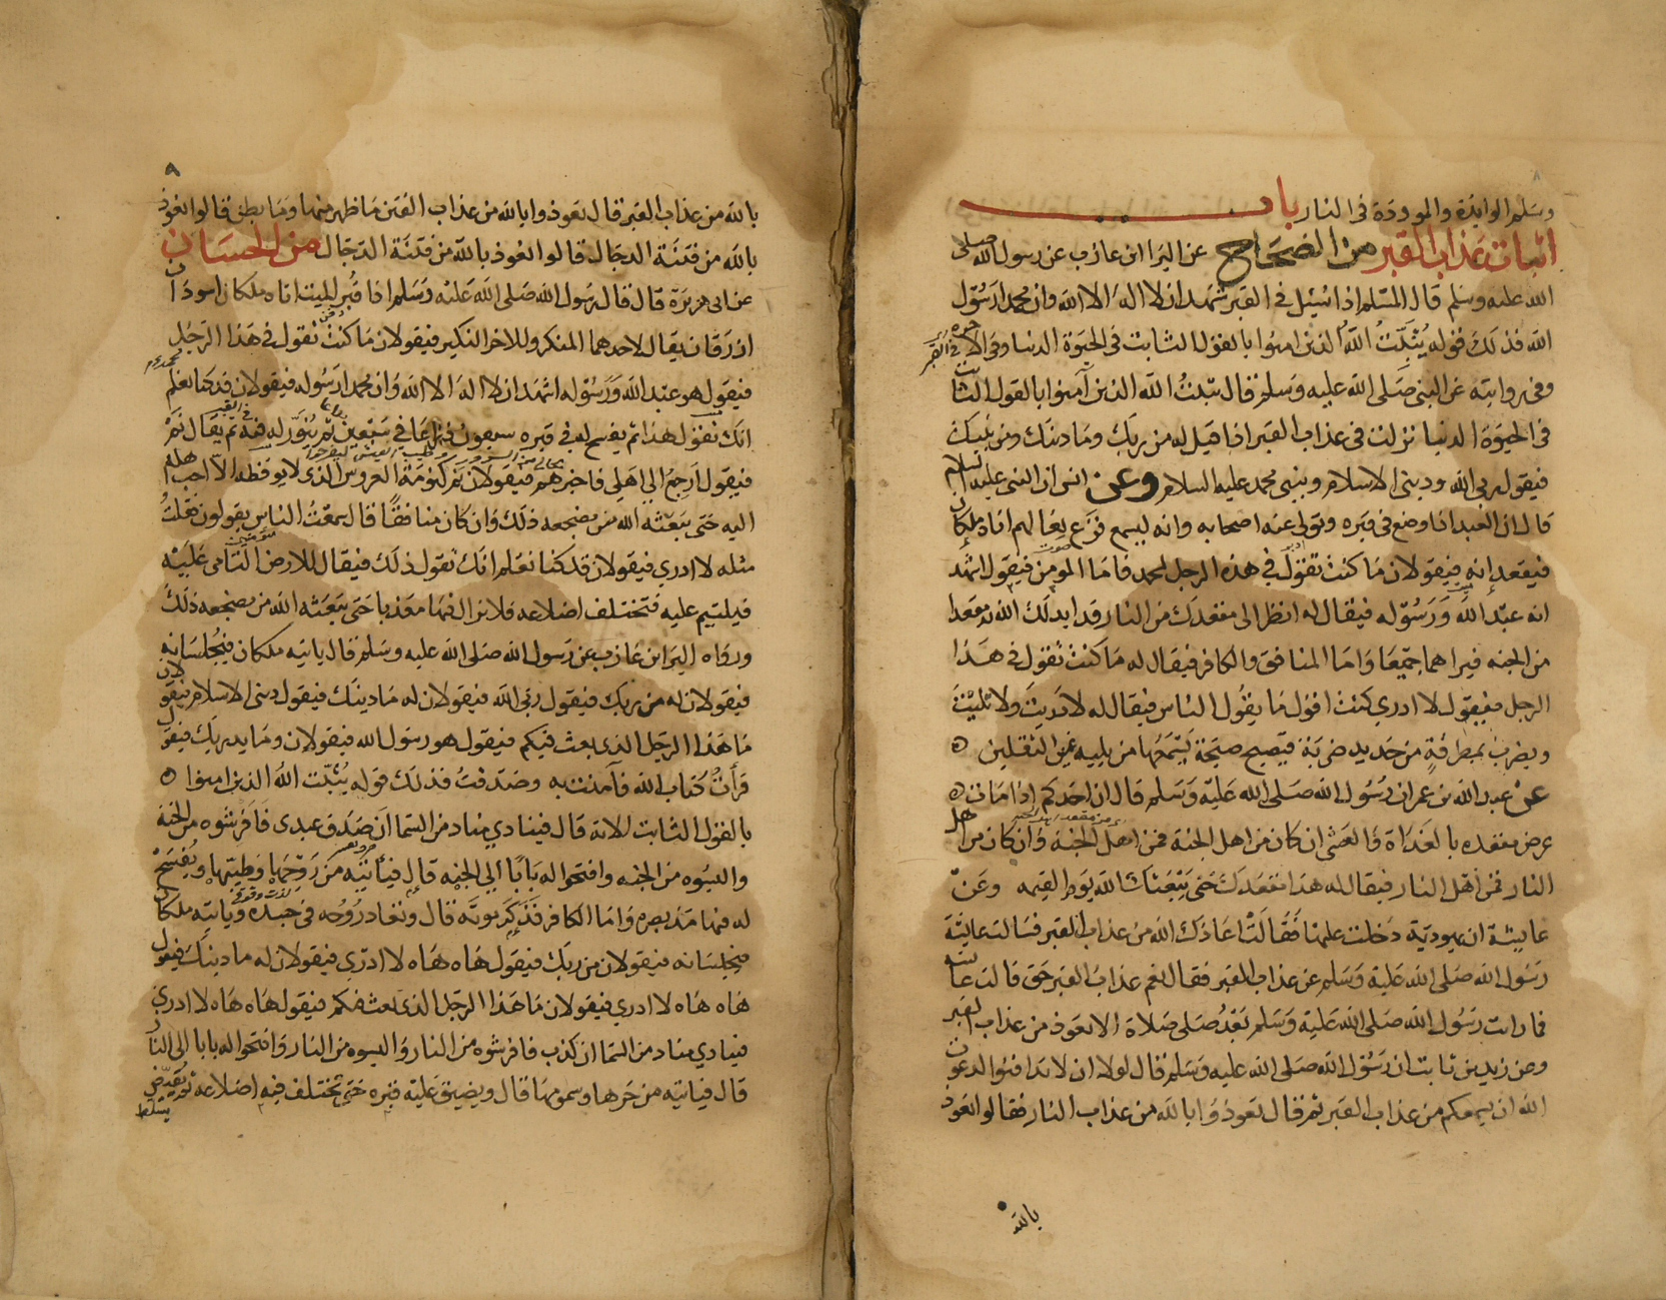 وسلم الوايدة والموودة في النار باب
اثبات عذاب القبر من الصحاح عن البرا ابن عازب عن رسول الله صلى
الله عليه وسلم قال المسلم اذا سئل في القبر شهد ان لا اله الا الله وان محمدا رسول
الله فذلك قوله يُثبّتُ اللهُ الذين امنوا بالقول الثابت في الحيوة الدنيا وفي الآخرة في القبر
وفي رواية عن النبي صلى الله عليه وسلم قال يثبت الله الذين آمنوا بالقول الثابت
في الحيوة الدنيا نزلت في عذاب القبر اذا قيل له من ربك وما دينك ومن نبيك
فيقول ربي الله وديني الاسلام ونبيي محمد عليه السلام وعن انس ان النبي عليه السلام
قال ان العبد اذا وضع في قبره وتولى عنه اصحابه وانه ليسمع قرع نعالهم اتاه ملكان
فيقعدانه فيقولان ما كنت تقول في هذا الرجل لمحمد فاما المومن فيقول اشهد
انه عبد الله ورسوله فيقال له انظر الى مقعدك من النار قد ابدلك الله به مقعدا
من الجنه فيراهما جميعا واما المنافق والكافر فيقال له ما كنت تقول في هذا
الرجل فيقول لا ادري كنت اقول ما يقول الناس فيقال له لا دريت ولا تليت
ويضرب بمطرقة من حديد ضربة فيصيح صيحة يسمعها من يليه غير الثقلين
عن عبد الله بن عمر ان رسول الله صلى الله عليه وسلم قال ان احدكم اذا مات
عرض مقعده بالغداة والعشي ان كان من اهل الجنة فمن اهل الجنة وان كان من اهل
النار فمن اهل النار فيقال له هذا مقعدك حتى يبعثك الله يوم القيمه وعن
عايشة ان يهودية دخلت عليها فقالت اعاذك الله من عذاب القبر فسالت عايشة
رسول الله صلى الله عليه وسلم عن عذاب القبر فقال نعم عذاب القبر حق قالت عايشه
فما رايت رسول الله صلى الله عليه وسلم بعد صلى صلاة الا تعوذ من عذاب القبر
وعن زيد بن ثابت ان رسول الله صلى الله عليه وسلم قال لولا ان لا تدافنوا لدعوت
الله ان يسمعكم من عذاب القبر ثم قال تعوذوا بالله من عذاب النار فقالوا نعوذ
بالله
٩
بالله من عذاب القبر قال تعوذوا بالله من عذاب الفتن ما ظهر منها وما بطن قالوا نعوذ
بالله من فتنة الدجال قالوا نعوذ بالله من فتنة الدجال من الحسان
عن ابي هريرة قال قال رسول الله صلى الله عليه وسلم اذا قبر الميت اتاه ملكان اسودان
ازرقان يقال لاحدهما المنكر وللاخر النكير فيقولان ما كنت تقول في هذا الرجل
فيقول هو عبد الله ورسوله اشهد ان لا اله الا الله وان محمدا رسوله فيقولان قد كنا نعلم
انك تقول هذا ثم يفسح له في قبره سبعون ذراعا في سبعين ثم ينور له فيه ثم يقال نم
فيقول ارجع الى اهلي فاخبرهم فيقولان نم كنومة العروس الذي لا يوقظه الا احب اهله
اليه حتى يبعثه الله من مضجعه ذلك وان كان منافقا قال سمعت الناس يقولون فقلت
مثله لا ادري فيقولان قد كنا نعلم انك تقول ذلك فيقال للارض التامي عليه
فيلتيم عليه فتختلف اضلاعه فلا يزال فيها معذبا حتى يبعثه الله من مضجعه ذلك
ورواه البرا بن عازب عن رسول الله صلى الله عليه وسلم قال ياتيه ملكان فيجلسانه
فيقولان له من ربك فيقول ربي الله فيقولان له ما دينك فيقول ديني الاسلام فيقولان
ما هذا الرجل الذي بعث فيكم فيقول هو رسول الله فيقولان وما يدريك فيقول
قرأت كتاب الله فآمنت به وصدقت فذلك قوله يُثبّت الله الذين امنوا
بالقول الثابت الاية قال فينادي مناد من السما ان صدق عبدي فافرشوه من الجنة
والبسوه من الجنه وافتحوا له بابا الى الجنه قال فياتيه من روحها وطيبها ويفسح
له فيها مد بصره واما الكافر فذكر موته قال وتعاد روحه في جسده وياتيه ملكان
فيجلسانه فيقولان من ربك فيقول هاه هاه لا ادري فيقولان له ما دينك فيقول
هاه هاه لا ادري فيقولان ما هذا الرجل الذي بعث فيكم فيقول هاه هاه لا ادري
فينادي مناد من السما ان كذب فافرشوه من النار والبسوه من النار وافتحوا له بابا الى النار
قال فياتيه من حرها وسمومها قال ويضيق عليه قبره حتى تختلف فيه اضلاعه ثم يقيض